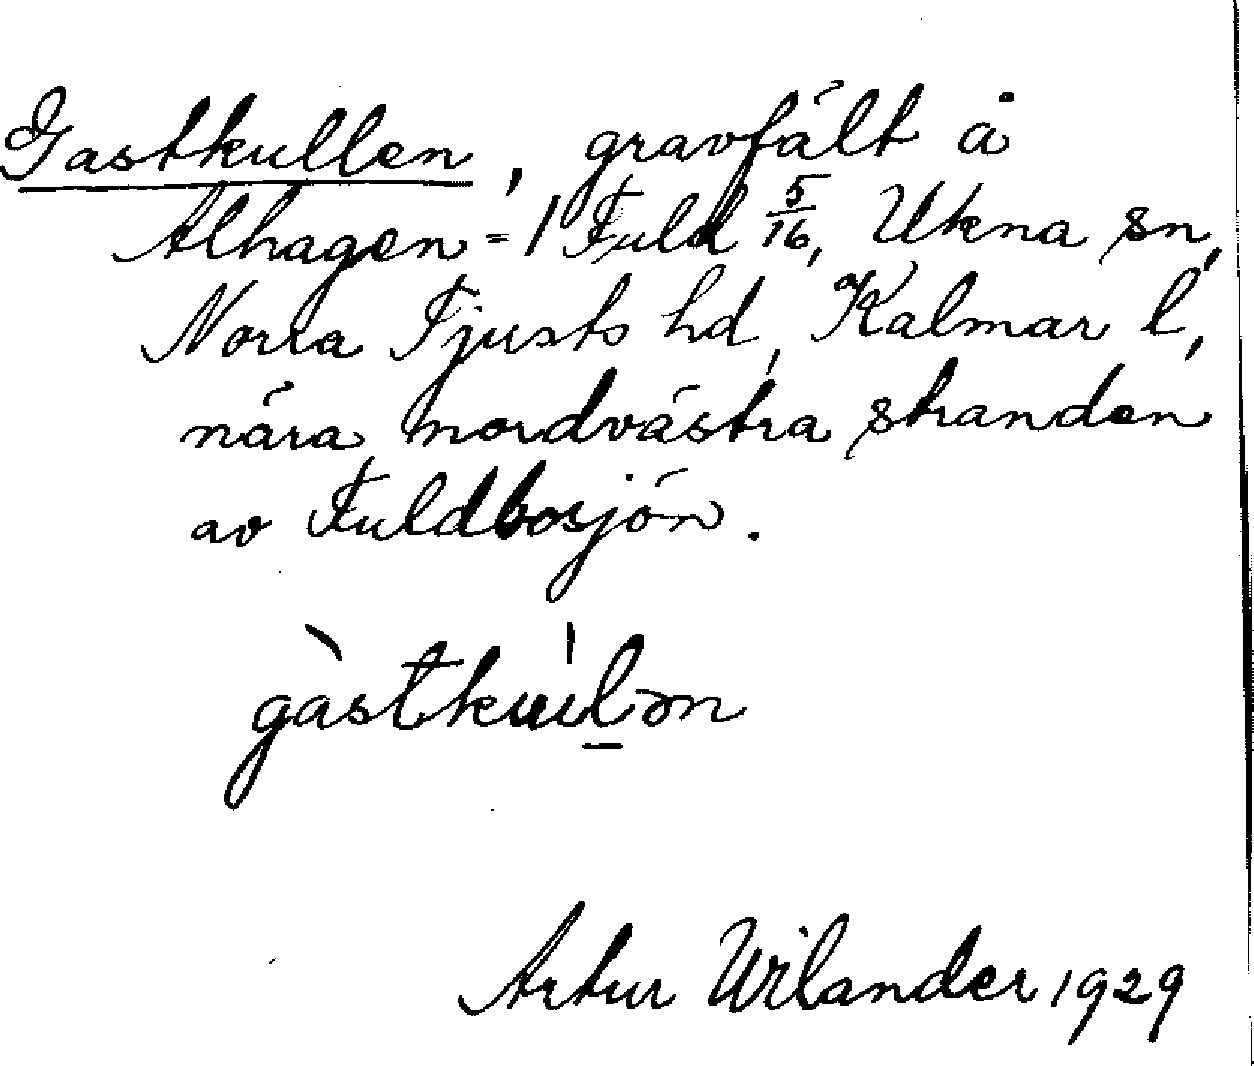 Gastkullen, gravfält å
Alhagen = 1 Fuld 5/16, Ukna sn,
Norra Tjusts hd, Kalmar l,
nära nordvästra stranden
av Fuldbosjön.
Artur Wilander 1929